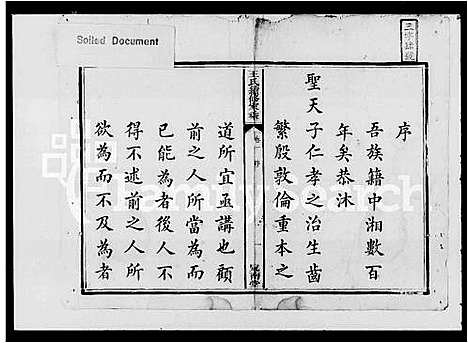 Soiled Document
序
吾族籍中湘數百
年矣恭沐
聖天子仁孝之治生齒
繁殷敦倫重本之
王氏續修家乘
卷一 序
道所宜亟講也顧
前之人所當為而
已能為者後人不
得不述前之人所
欲為而不及為者
FamilySearch